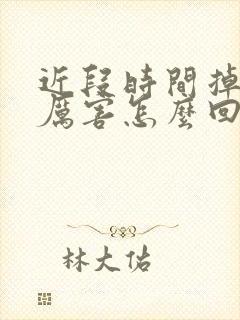 近段時間掉
厲害怎麼回
林大佑